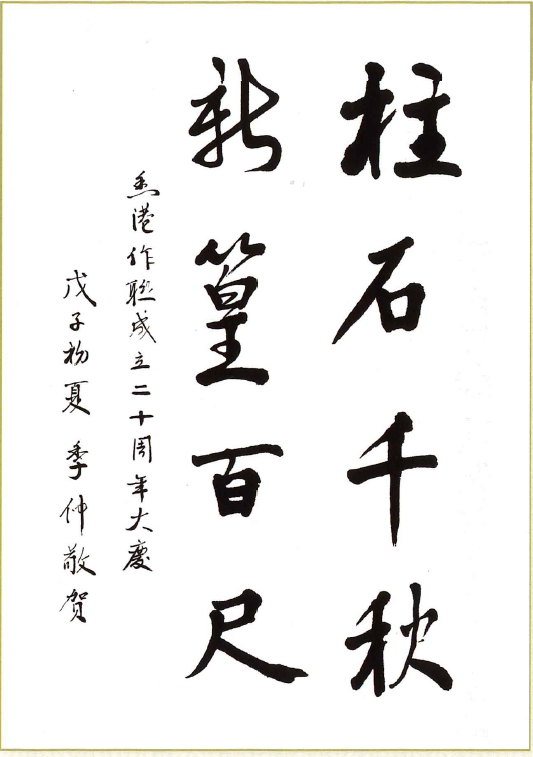 柱石千秋
新篁百尺
香港作联成立二十周年大慶
戊子初夏 季仲敬賀